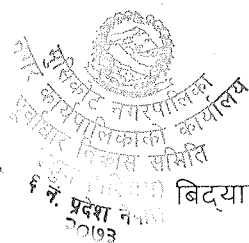 मुसिकोट नगरपालिका
नगर कार्यपालिकाको कार्यालय
पूर्वाधार विकास समिति
६ नं. प्रदेश नेपाल
२०७३
बिद्या